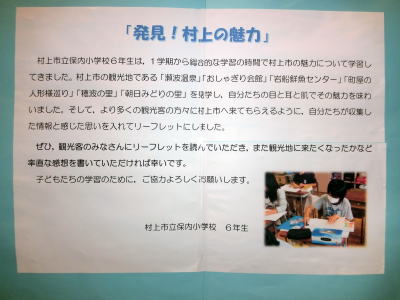 「発見！村上の魅力」
村上市立保内小学校６年生は、１学期から総合的な学習の時間で村上市の魅力について学習し
てきました。村上市の観光地である「瀬波温泉」「おしゃぎり会館」「岩船鮮魚センター」「町屋の
人形様巡り」「穂波の里」「朝日みどりの里」を見学し、自分たちの目と耳と肌でその魅力を味わ
いました。そして、より多くの観光客の方々に村上市へ来てもらえるように、自分たちが収集し
た情報と感じた思いを入れてリーフレットにしました。
ぜひ、観光客のみなさんにリーフレットを読んでいただき、また観光地に来たくなったかなど
率直な感想を書いていただければ幸いです。
子どもたちの学習のために、ご協力よろしくお願いします。
村上市立保内小学校　６年生